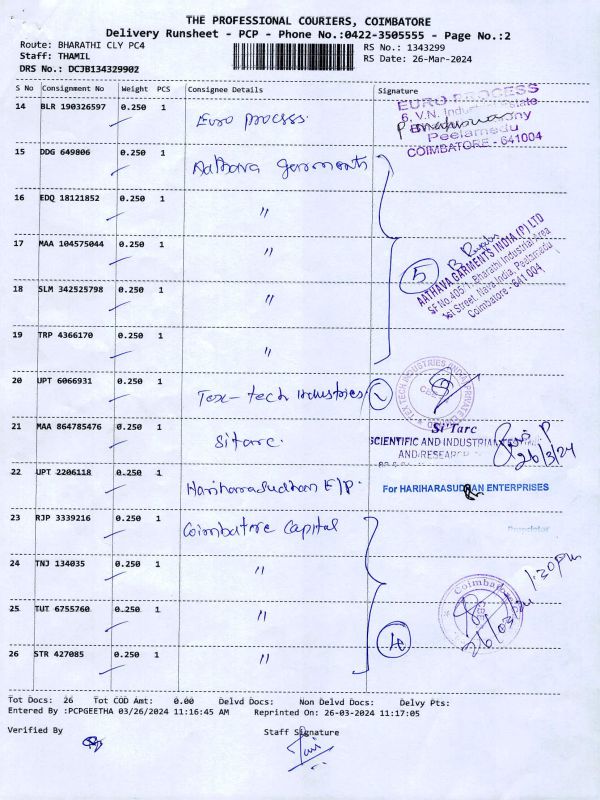 THE PROFESSIONAL COURIERS, COIMBATORE
Delivery Runsheet - PCP - Phone No.:0422-3505555 - Page No.:2
Route: BHARATHI CLY PC4
RS No.: 1343299
Staff: THAMIL
RS Date: 26-Mar-2024
DRS No.: DCJB134329902
S No Consignment No Weight PCS Consignee Details Signature
14 BLR 190326597 0.250 1 Euro process.
EURO PROCESS
6, V.N. Industrial Estate
Peelamedu
COIMBATORE - 641004
15 DDG 649806 0.250 1 Aathava garments
16 EDQ 18121852 0.250 1 "
17 MAA 104575044 0.250 1 "
5
AATHAVA GARMENTS INDIA (P) LTD
SF No.405/1, Bharathi Industrial Area
1st Street, Nava India, Peelamedu
Coimbatore - 641 004.
18 SLM 342525798 0.250 1 "
19 TRP 4366170 0.250 1 "
20 UPT 6066931 0.250 1 Tex-tech industries
TEX TECH INDUSTRIES INDIA PRIVATE
21 MAA 864785476 0.250 1 Sitarc.
Si'Tarc
SCIENTIFIC AND INDUSTRIAL TESTING
AND RESEARCH
26/3/24
22 UPT 2206118 0.250 1 Hariharasudhan E/P.
For HARIHARASUDHAN ENTERPRISES
23 RJP 3339216 0.250 1 Coimbatore Capital
24 TNJ 134035 0.250 1 "
Coimbatore
26/03/24 1:30 Pm
25 TUT 6755760 0.250 1 "
26 STR 427085 0.250 1 "
Tot Docs: 26 Tot COD Amt: 0.00 Delvd Docs: Non Delvd Docs: Delvy Pts:
Entered By :PCPGEETHA 03/26/2024 11:16:45 AM Reprinted On: 26-03-2024 11:17:05
Verified By
Staff Signature